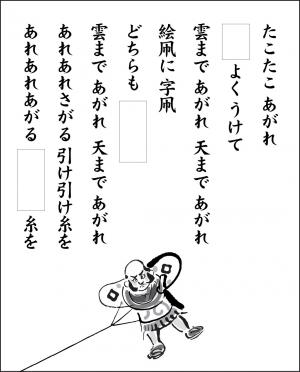 たこたこ あがれ
よくうけて
雲まで あがれ 天まで あがれ
絵凧に 字凧
どちらも
雲まで あがれ 天まで あがれ
あれあれさがる 引け引け糸を
あれあれあがる 糸を